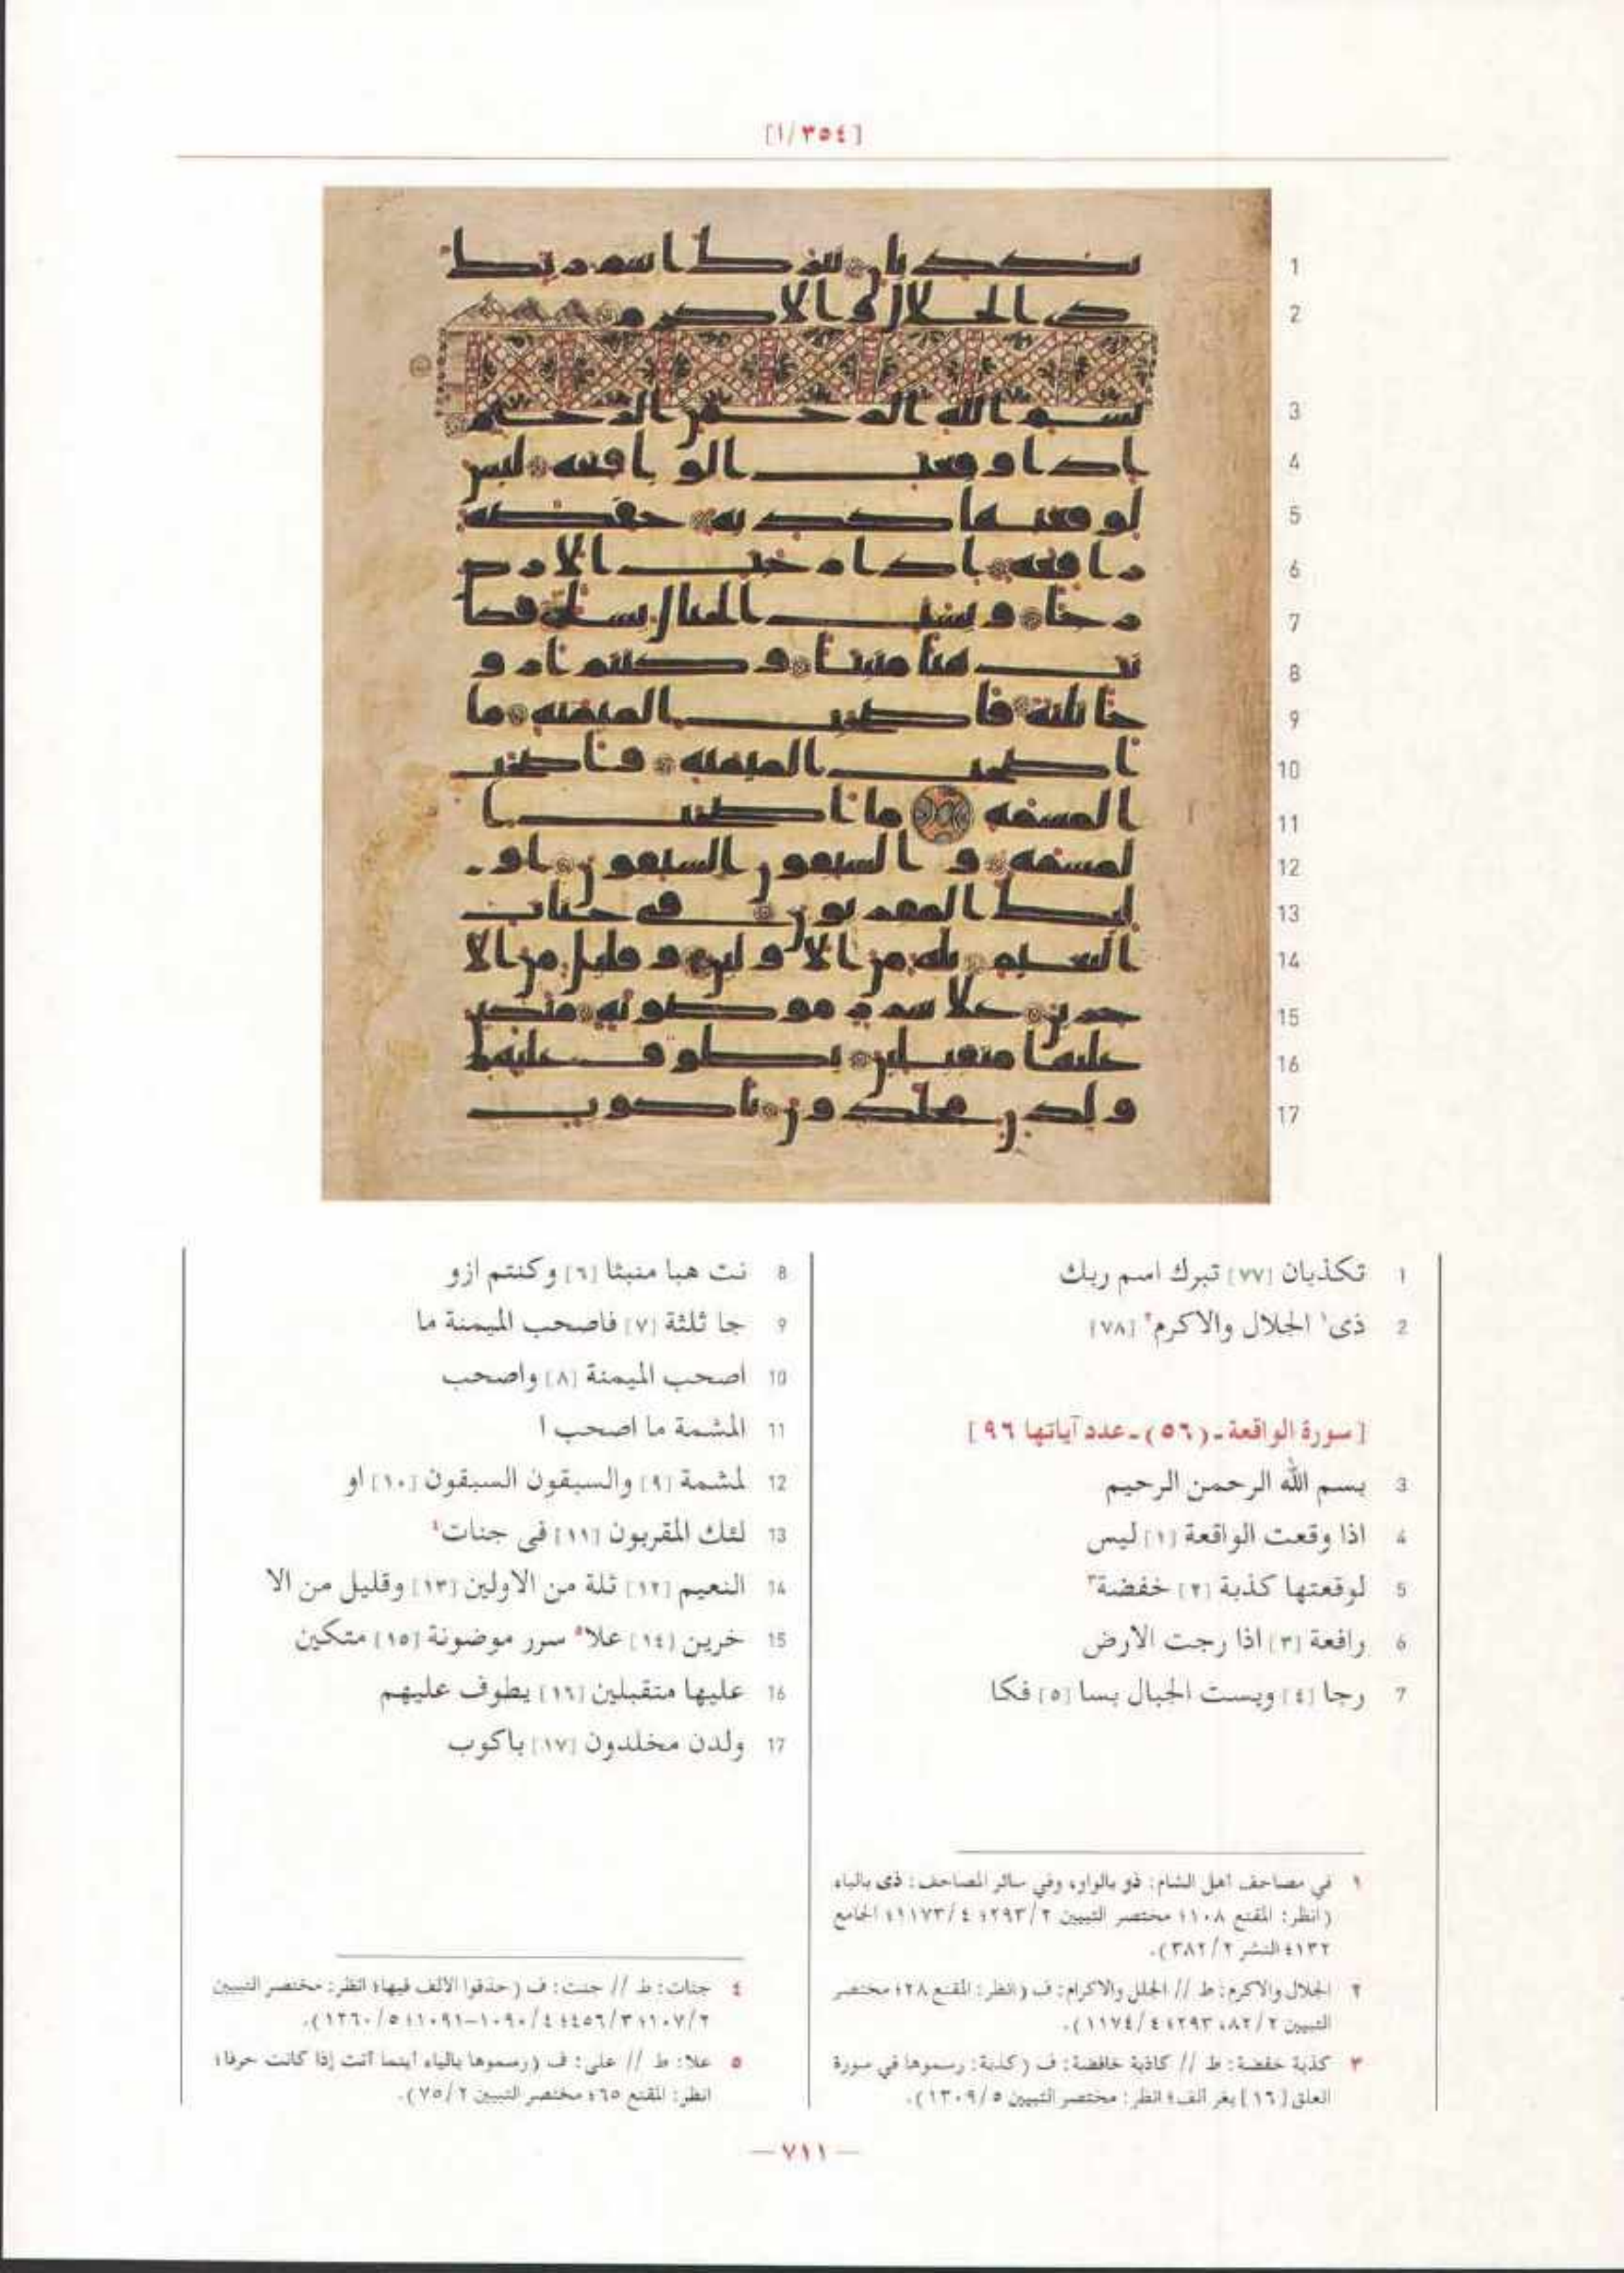 [٣٥٤/ا]
1 تكذبان [٧٧] تبرك اسم ربك
2 ذى١ الجلال والاكرم٢ [٧٨]
[سورة الواقعة ـ (٥٦) ـ عدد آياتها ٩٦]
3 بسم الله الرحمن الرحيم
4 اذا وقعت الواقعة [١] ليس
5 لوقعتها كذبة [٢] خفضة٣
6 رافعة [٣] اذا رجت الارض
7 رجا [٤] وبست الجبال بسا [٥] فكا
8 نت هبا منبثا [٦] وكنتم ازو
9 جا ثلثة [٧] فاصحب الميمنة ما
10 اصحب الميمنة [٨] واصحب
11 المشمة ما اصحب ا
12 لمشمة [٩] والسبقون السبقون [١٠] او
13 لئك المقربون [١١] فى جنات٤
14 النعيم [١٢] ثلة من الاولين [١٣] وقليل من الا
15 خرين [١٤] علا٥ سرر موضونة [١٥] متكين
16 عليها متقبلين [١٦] يطوف عليهم
17 ولدن مخلدون [١٧] باكوب
١ في مصاحف أهل الشام: ذو بالواو، وفي سائر المصاحف: ذى بالياء
(انظر: المقنع ١٠٨؛ مختصر التبيين ٢/٢٩٣؛ ٤/١١٧٣؛ الجامع
١٣٢؛ النشر ٢/٣٨٢).
٢ الجلال والاكرم: ط // الجلل والاكرام: ف (انظر: المقنع ٢٨؛ مختصر
التبيين ٢/٨٢، ٢٩٣؛ ٤/١١٧٤).
٣ كذبة خفضة: ط // كاذبة خافضة: ف (كذبة: رسموها في سورة
العلق [١٦] بغر ألف؛ انظر: مختصر التبيين ٥/١٣٠٩).
٤ جنات: ط // جنت: ف (حذفوا الألف فيها؛ انظر: مختصر التبيين
٢/١٠٧؛ ٣/٤٥٦؛ ٤/١٠٩٠-١٠٩١؛ ٥/١٢٦٠).
٥ علا: ط // على: ف (رسموها بالياء أينما أتت إذا كانت حرفا؛
انظر: المقنع ٦٥؛ مختصر التبيين ٢/٧٥).
— ٧١١ —